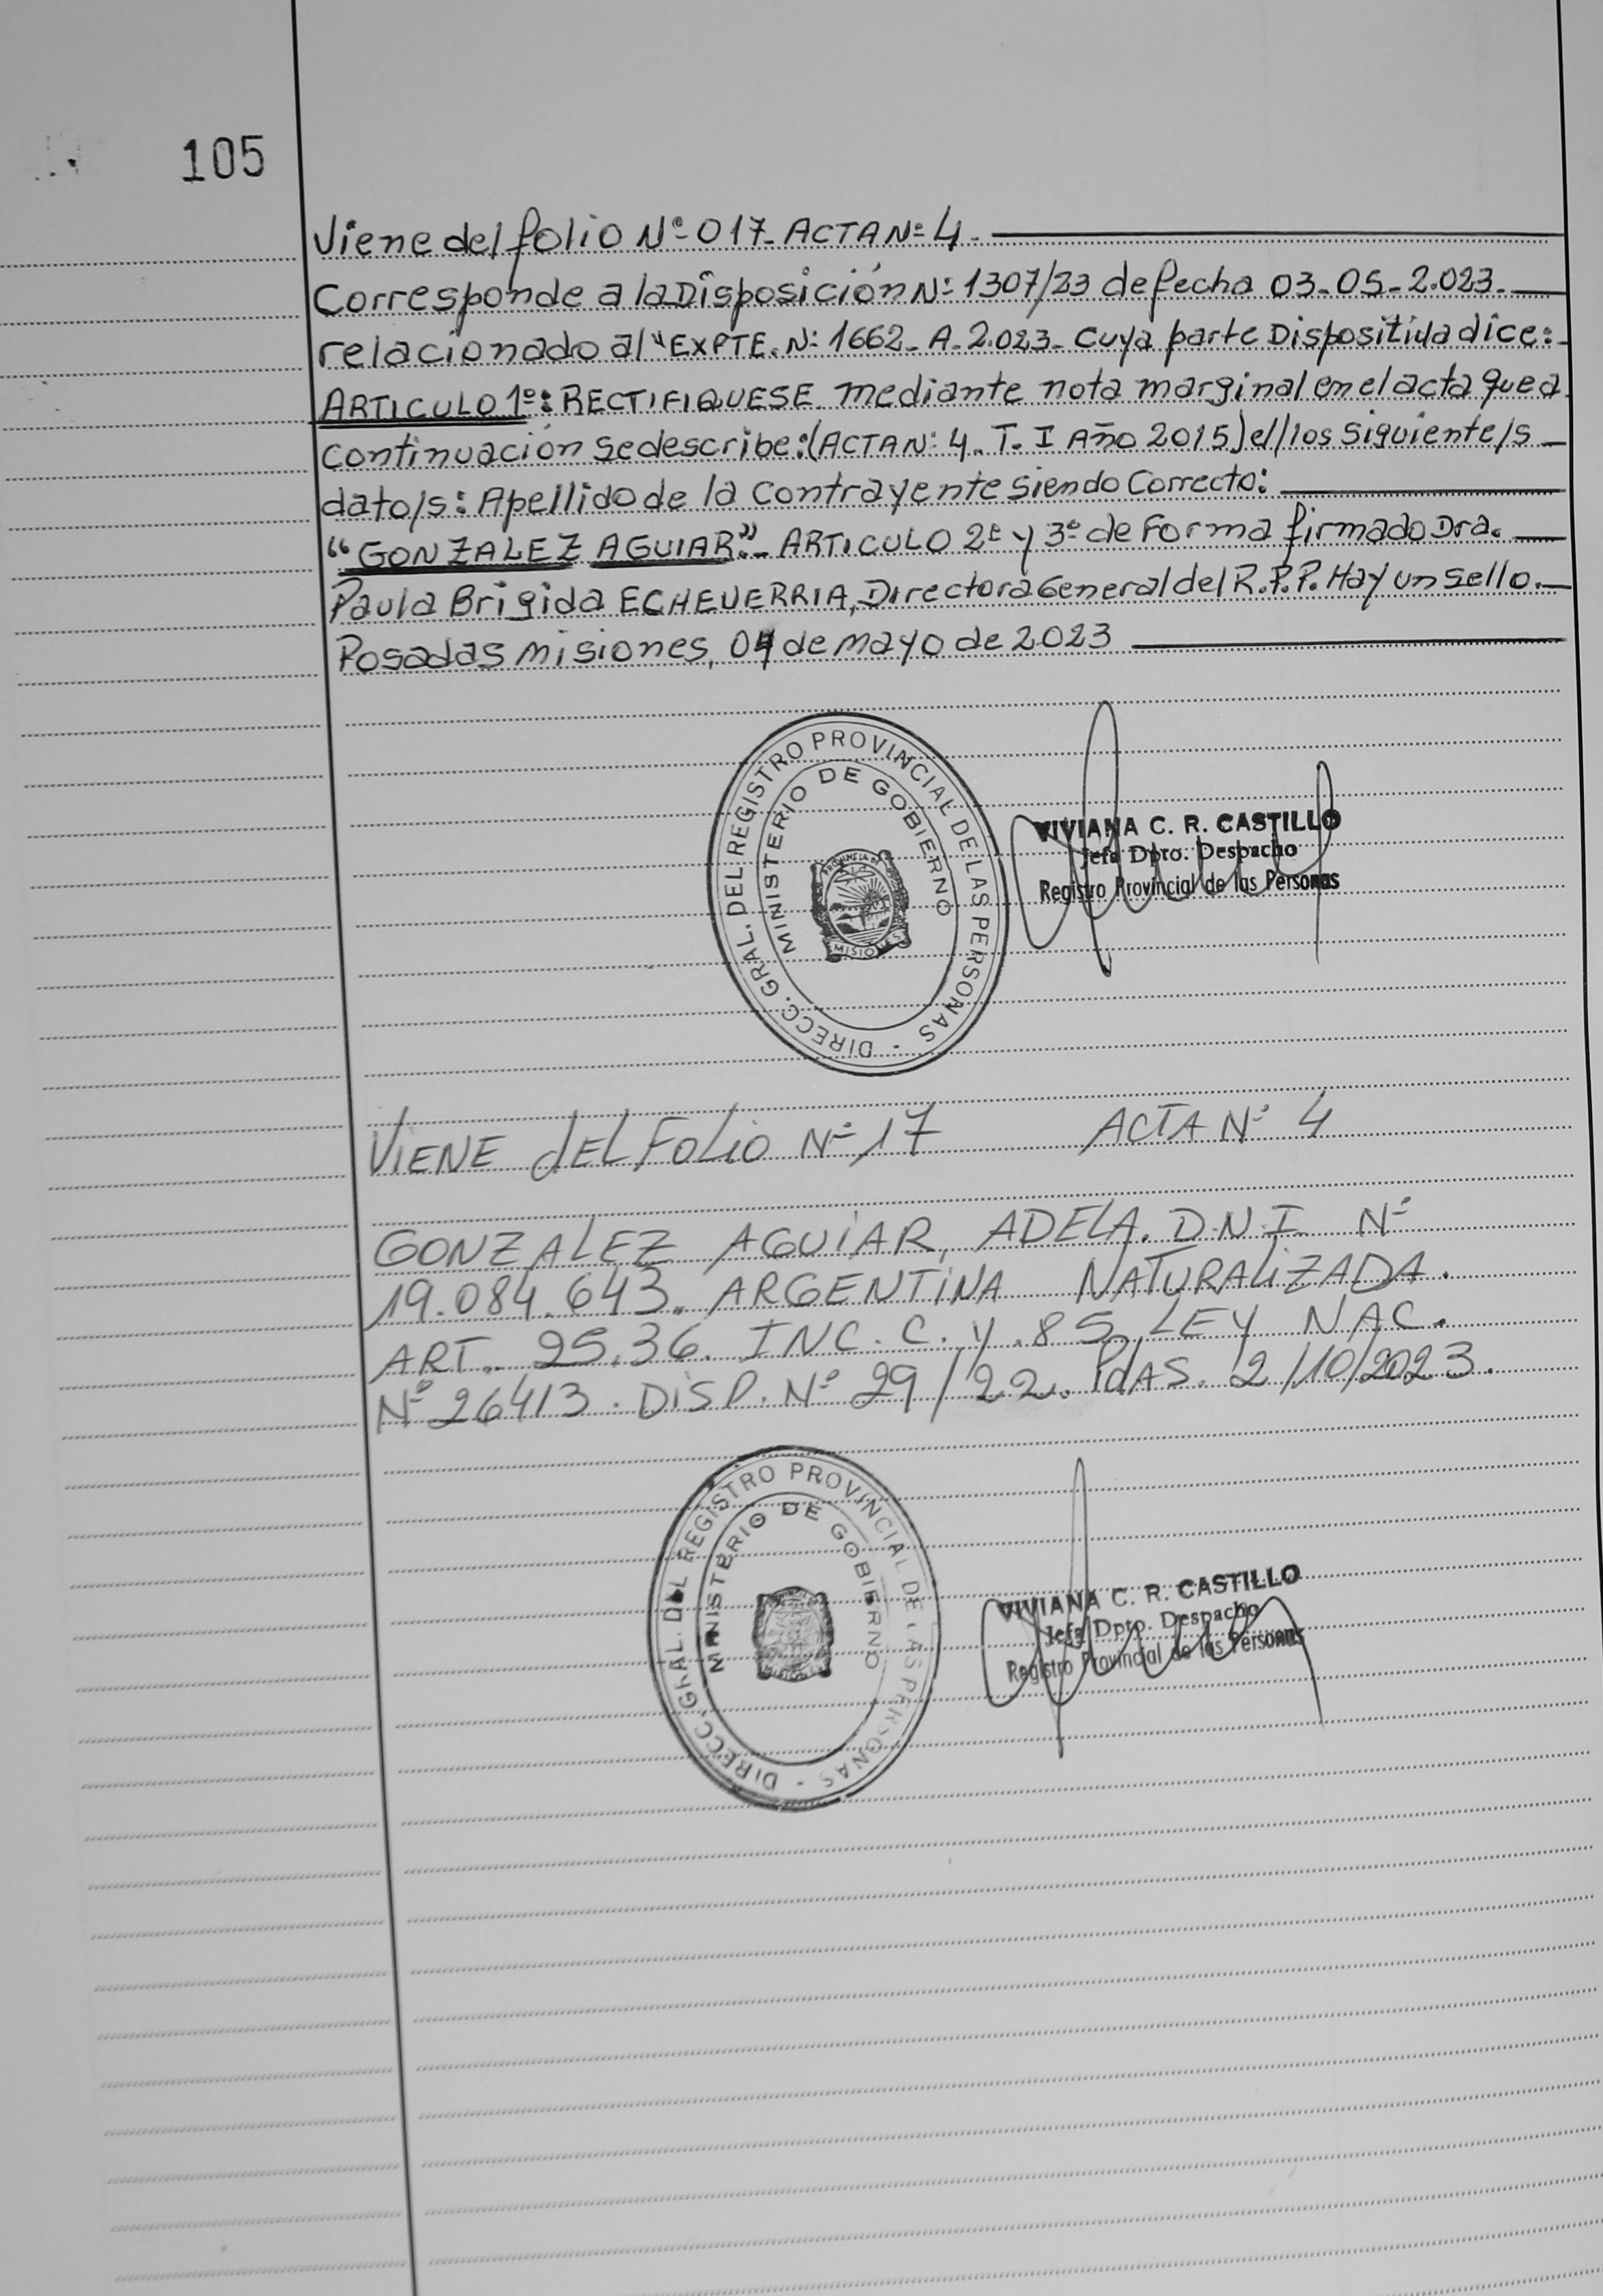 105
Viene del folio Nº 017- ACTA Nº 4.
Corresponde a la Disposición Nº 1307/23 de fecha 03-05-2.023-
relacionado al "EXPTE. Nº 1662- A-2.023- Cuya parte Dispositiva dice:
ARTICULO 1º: RECTIFIQUESE mediante nota marginal en el acta que a
Continuación se describe: (ACTA Nº 4. T. I Año 2015) el/los siguiente/s
dato/s: Apellido de la Contrayente siendo Correcto:
"GONZALEZ AGUIAR". ARTICULO 2º y 3º de Forma firmado Dra.
Paula Brigida ECHEVERRIA, Directora General del R.P.P. Hay un sello.
Posadas Misiones, 04 de mayo de 2023
DIRECC. GRAL. DEL REGISTRO PROVINCIAL DE LAS PERSONAS -
MINISTERIO DE GOBIERNO
PROVINCIA DE
MISIONES
VIVIANA C. R. CASTILLO
Jefa Dpto. Despacho
Registro Provincial de las Personas
VIENE DEL FOLIO Nº 17 ACTA Nº 4
GONZALEZ AGUIAR, ADELA. D.N.I. Nº
19.084.643. ARGENTINA NATURALIZADA.
ART. 25.36. INC. C. y. 85 LEY NAC.
Nº 26413. DISP. Nº 29/22. PdAS. 2/10/2023.
DIRECC. GRAL. DEL REGISTRO PROVINCIAL DE LAS PERSONAS -
MINISTERIO DE GOBIERNO
VIVIANA C. R. CASTILLO
Jefa Dpto. Despacho
Registro Provincial de las Personas